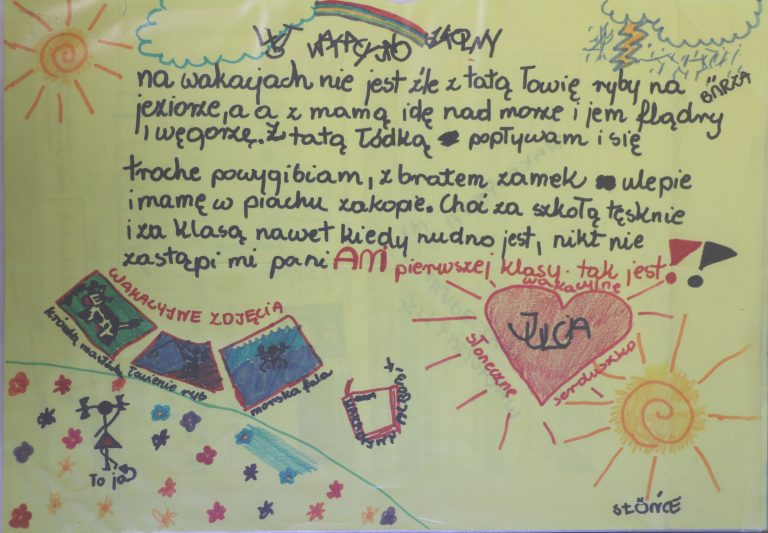 na wakacjach nie jest źle z tatą łowię ryby na
jeziorze, a a z mamą idę nad morze i jem flądry
i węgorze. Z tatą łódką popływam i się
troche powygibiam, z bratem zamek ulepie
i mamę w piachu zakopie. Choć za szkołą tęsknie
i za klasą nawet kiedy nudno jest, nikt nie
zastąpi mi pani AMI pierwszej klasy. tak jest!!
BÓRZA
WAKACYJNE ZDJĘCIA
łowienie ryb
morska fala
To ja
wakacyjne
JULCIA
słoneczne
serduszko
SŁÓŃCE